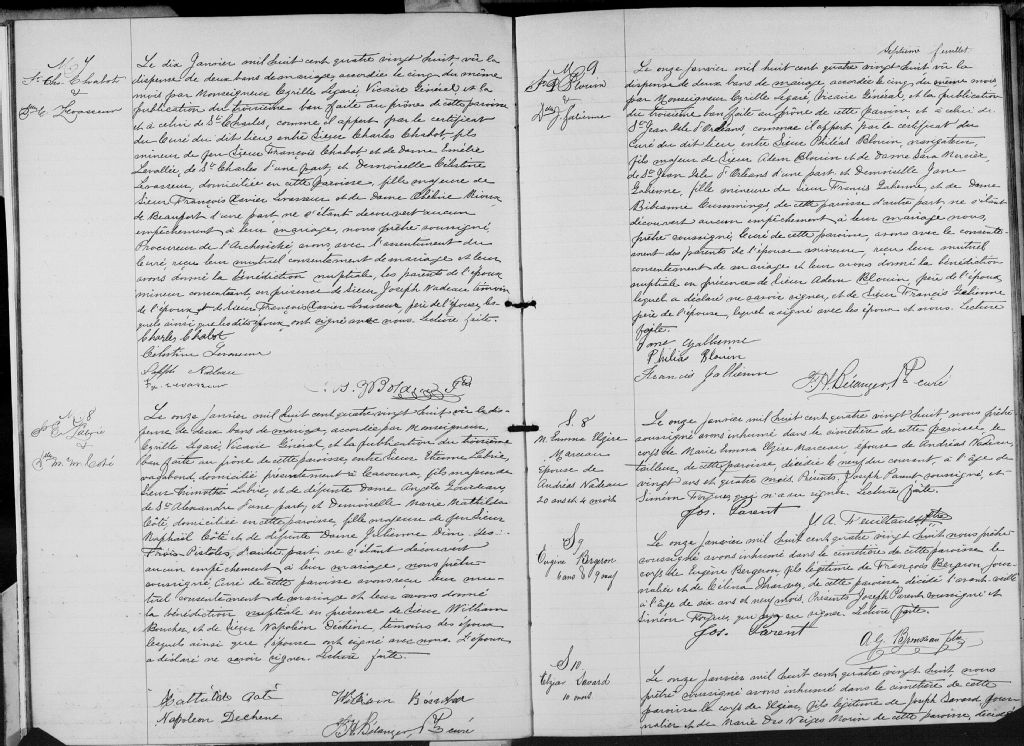 N. 7
Sr Chs Chabot
&
Dlle C. Levasseur
Le dix Janvier mil huit cent quatre vingt huit, vû la
dispense de deux bans de mariage, accordée le cinq du même
mois par Monseigneur Cyrille Legaré, Vicaire Général et la
publication du troisième ban faite au prône de cette paroisse
et à celui de St Charles, comme il appert par le certificat
du Curé du dit lieu entre Sieur Charles Chabot fils
mineur de feu Sieur François Chabot et de Dame Emélie
Lavallée, de St Charles d'une part, et Demoiselle Célestine
Levasseur, domiciliée en cette paroisse, fille majeure de
Sieur François Xavier Levasseur et de Dame
de Beauport d'autre part ne s'étant découvert aucun
empêchement à leur mariage, nous prêtre soussigné
Procureur de l'Archevêché avons, avec l'assentiment du
Curé, reçu leur mutuel consentement de mariage et leur
avons donné la bénédiction nuptiale, les parents de l'époux
mineur consentant, en présence de Sieur Joseph Nadeau témoin
de l'époux et de Sieur François Xavier Levasseur, père de l'épouse, les
quels ainsi que les dits époux ont signé avec nous. Lecture faite.
Charles Chabot
Célestine Levasseur
Joseph Nadeau
F. X. Levasseur
N. 8
Sr E. Labrie
&
Dlle M. M. Côté
Le onze Janvier mil huit cent quatre vingt huit vû la dis-
pense de deux bans de mariage, accordée par Monseigneur,
Cyrille Legaré, Vicaire Général, et la publication du troisième
ban faite au prône de cette paroisse, entre Sieur Etienne Labrie,
domicilié présentement à Cacouna, fils majeur de
Sieur Timothé Labrie, et de défunte Dame Angèle Gourdeau
de St Alexandre d'une part, et Demoiselle Marie Mathilda
Côté, domiciliée en cette paroisse, fille majeure de feu Sieur
Raphaël Côté et de défunte Dame Julienne Dion, des
Trois Pistoles, d'autre part, ne s'étant découvert
aucun empêchement à leur mariage, nous prêtre
soussigné Curé de cette paroisse avons reçu leur mu-
tuel consentement de mariage et leur avons donné
la bénédiction nuptiale en présence de Sieur William
Boucher, et de Sieur Napoléon Dechêne, témoins des époux
lesquels ainsi que l'épouse ont signé avec nous. L'époux
a déclaré ne savoir signer. Lecture faite.
Mathilde Coté
William Boucher
Napoleon Dechene
F. H. Bélanger Ptre curé
Septième feuillet
M 9
Sr P. Blouin
&
Dlle J. Galienne
Le onze janvier mil huit cent quatre vingt huit vû la
dispense de deux bans de mariage, accordée le cinq du même mois
par Monseigneur Cyrille Legaré, Vicaire Général, et la publication
du troisième ban faite au prône de cette paroisse, et à celui de
St Jean Isle d'Orléans, comme il appert par le certificat du
Curé du dit lieu entre Sieur Philéas Blouin, navigateur,
fils majeur de Sieur Adem Blouin et de Dame Sara Mercier,
de St Jean Isle d'Orléans d'une part et Demoiselle Jane
Galienne, fille mineure de Sieur Francis Galienne, et de Dame
Bibeanne Cummings, de cette paroisse d'autre part, ne s'étant
découvert aucun empêchement à leur mariage nous,
prêtre soussigné, Curé de cette paroisse, avons avec le consente-
ment des parents de l'épouse mineure, reçu leur mutuel
consentement de mariage et leur avons donné la bénédiction
nuptiale en présence de Sieur Adem Blouin, père de l'époux,
lequel a déclaré ne savoir signer, et de Sieur Francis Galienne
père de l'épouse, lequel a signé avec les époux et nous. Lecture
faite.
Jane Gallienne
Philias Blouin
Francis Gallienne
F. H. Bélanger Ptre curé
S. 8
M. Emma Elzire
Marceau
épouse de
Andréas Nadeau
20 ans et 4 mois
Le onze janvier mil huit cent quatre vingt huit, nous prêtre
soussigné avons inhumé dans le cimetière de cette paroisse, le
corps de Marie Emma Elzire Marceau, épouse de Andréas Nadeau,
tailleur, de cette paroisse, décédée le neuf du courant, à l'âge de
vingt ans et quatre mois. Présents, Joseph Parent soussigné, et
Siméon Forgues qui n'a su signer. Lecture faite.
Jos. Parent
S 9
Eugène Bergeron
6 ans & 9 mois
Le onze janvier mil huit cent quatre vingt huit nous prêtre
soussigné avons inhumé dans le cimetière de cette paroisse le
corps de Eugène Bergeron, fils légitime de François Bergeron jour-
nalier et de Célina de cette paroisse décédé l'avant-veille
à l'âge de six ans et neuf mois. Présents Joseph Parent soussigné et
Siméon Forgues, qui n'a su signer. Lecture faite.
Jos. Parent
S 10
Elzéar Savard
10 mois
Le onze janvier mil huit cent quatre vingt huit nous
prêtre soussigné avons inhumé dans le cimetière de cette
paroisse le corps de Elzéar, fils légitime de Joseph Savard, jour-
nalier et de Marie Des Neiges Morin de cette paroisse, décédé